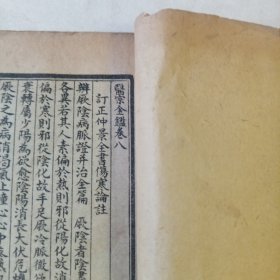 醫宗金鑑卷八
訂正仲景全書傷寒論註
辨厥陰病脈證并治全篇　厥陰者陰
各異若其人素偏於熱則邪從陽化故消
偏於寒則邪從陰化故手足厥冷脈微
衰轉屬少陽為欲愈陰陽消長大伏危
厥陰之為病消渴氣上撞心心中疼